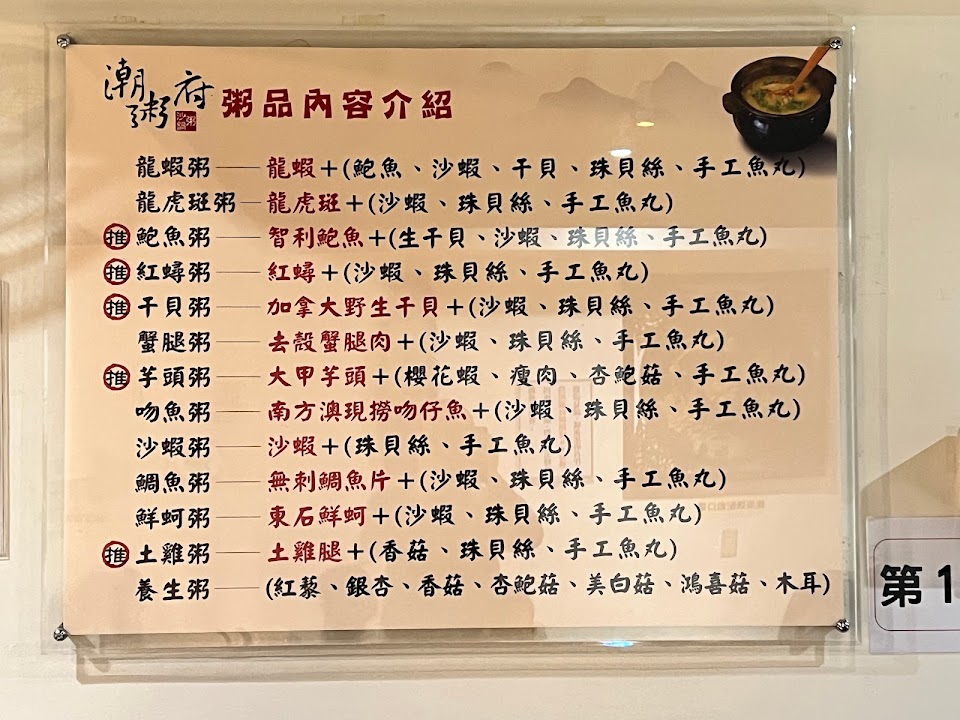 潮粥府 沙鍋粥 粥品內容介紹
龍蝦粥——龍蝦+(鮑魚、沙蝦、干貝、珠貝絲、手工魚丸)
龍虎斑粥—龍虎斑+(沙蝦、珠貝絲、手工魚丸)
推 鮑魚粥——智利鮑魚+(生干貝、沙蝦、珠貝絲、手工魚丸)
推 紅蟳粥——紅蟳+(沙蝦、珠貝絲、手工魚丸)
推 干貝粥——加拿大野生干貝+(沙蝦、珠貝絲、手工魚丸)
蟹腿粥——去殼蟹腿肉+(沙蝦、珠貝絲、手工魚丸)
推 芋頭粥——大甲芋頭+(櫻花蝦、瘦肉、杏鮑菇、手工魚丸)
吻魚粥——南方澳現撈吻仔魚+(沙蝦、珠貝絲、手工魚丸)
沙蝦粥——沙蝦+(珠貝絲、手工魚丸)
鯛魚粥——無刺鯛魚片+(沙蝦、珠貝絲、手工魚丸)
鮮蚵粥——東石鮮蚵+(沙蝦、珠貝絲、手工魚丸)
推 土雞粥——土雞腿+(香菇、珠貝絲、手工魚丸)
養生粥——(紅藜、銀杏、香菇、杏鮑菇、美白菇、鴻喜菇、木耳)
第1